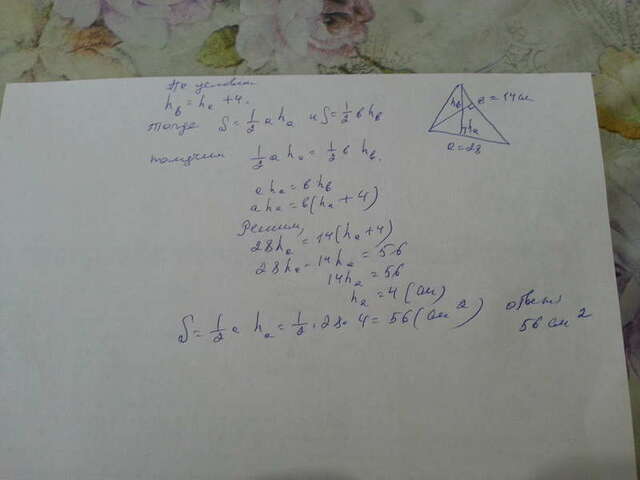 По условию
hв = hа + 4.
Тогда S = 1/2 a hа и S = 1/2 в hв
получим 1/2 a hа = 1/2 в hв.
a hа = в hв
a hа = в(hа + 4)
Решим,
28hа = 14(hа + 4)
28hа - 14hа = 56
14hа = 56
hа = 4 (см)
S = 1/2 a hа = 1/2 · 28 · 4 = 56 (см²)
ответ
56 см²
hв
в = 14см
hа
a = 28